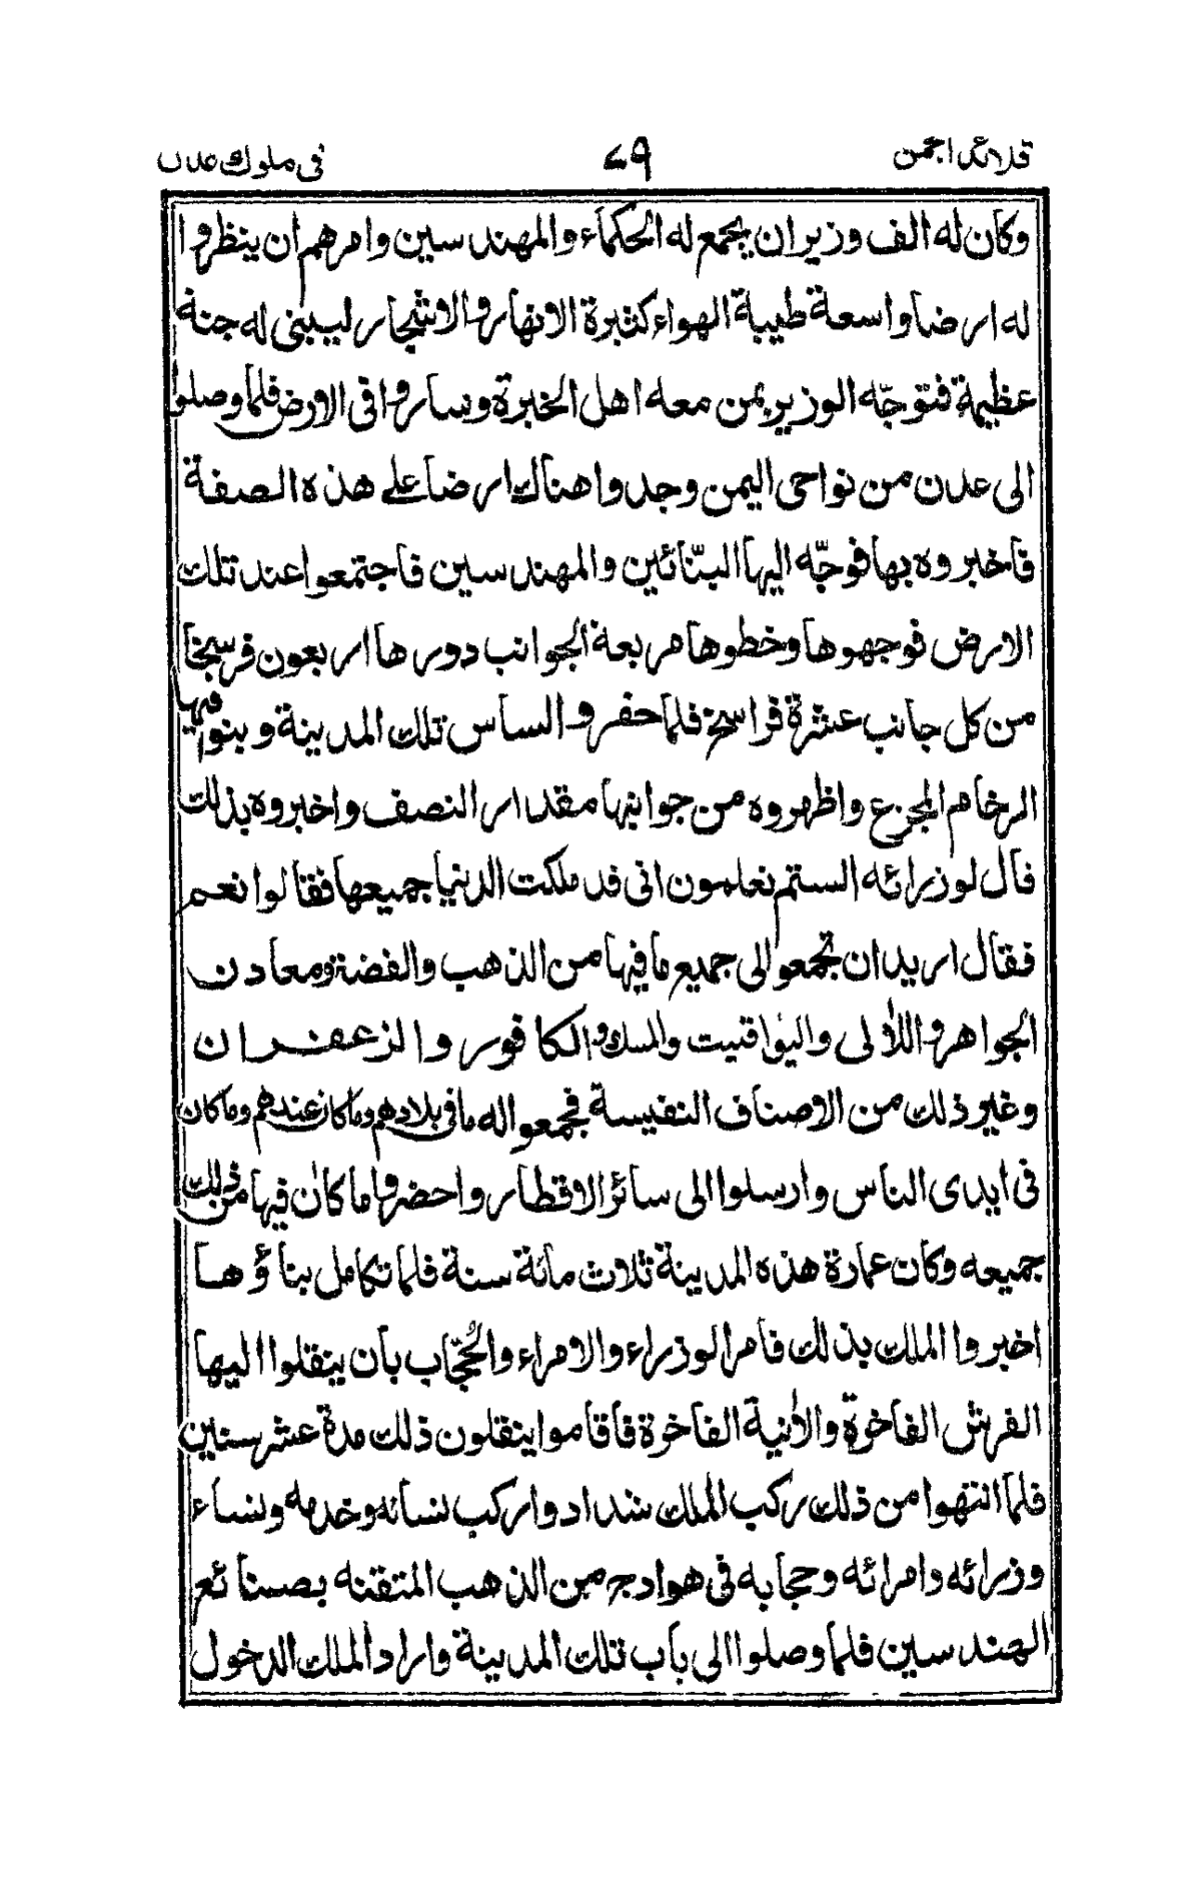 قلائد اجمن ٤٩ في ملوك عدن
وكان له الف وزيران يجمع له الحكماء والمهندسين وامرهم ان ينظروا
له ارضا واسعة طيبة الهواء كثيرة الانهار والاشجار ليبنى له جنة
عظيمة فتوجّه الوزير بمن معه اهل الخبرة وساروا فى الارض فلما وصلوا
الى عدن من نواحى اليمن وجدوا هناك ارضا على هذه الصفة
فاخبروه بها فوجّه اليها البنّائين والمهندسين فاجتمعوا عند تلك
الارض فوجهوها وخطوها مربعة الجوانب دورها اربعون فرسخا
من كل جانب عشرة فراسخ فلما حفروا لساس تلك المدينة وبنوا فيها
الرخام المجزع واظهروه من جوانبها مقدار النصف واخبروه بذلك
قال لوزرائه الستم تعلمون انى قد ملكت الدنيا جميعها فقالوا نعم
فقال اريد ان تجمعوا لى جميع ما فيها من الذهب والفضة ومعادن
الجواهر واللآلى واليواقيت والمسك والكافور والزعفران
وغير ذلك من الاصناف النفيسة فجمعوا له ما فى بلادهم وما كان عندهم وما كان
فى ايدى الناس وارسلوا الى سائر الاقطار واحضروا ما كان فيها من ذلك
جميعه وكان عمارة هذه المدينة ثلاث مائة سنة فلما تكامل بناؤها
اخبروا الملك بذلك فامر الوزراء والامراء والحُجّاب بان ينقلوا اليها
الفرش الفاخرة والآنية الفاخرة فاقاموا ينقلون ذلك مدة عشر سنين
فلما انتهوا من ذلك ركب الملك شداد واركب نسائه وخدمه ونساء
وزرائه وامرائه وحجابه فى هوادج من الذهب المتقنه بصنائع
الهندسين فلما وصلوا الى باب تلك المدينة واراد الملك الدخول